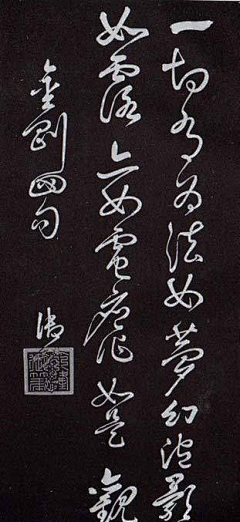 一切有为法如梦幻泡影
如露亦如電应作如是觀
金剛四句